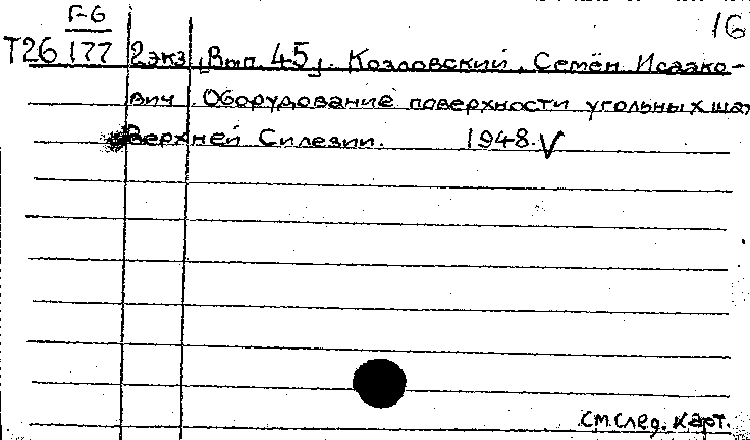 Г-6
16
Т26 177 2 экз [Вып. 45]. Козловский, Семён Исаако-
вич Оборудование поверхности угольных шах
Верхней Силезии. 1948.
см. след. карт.